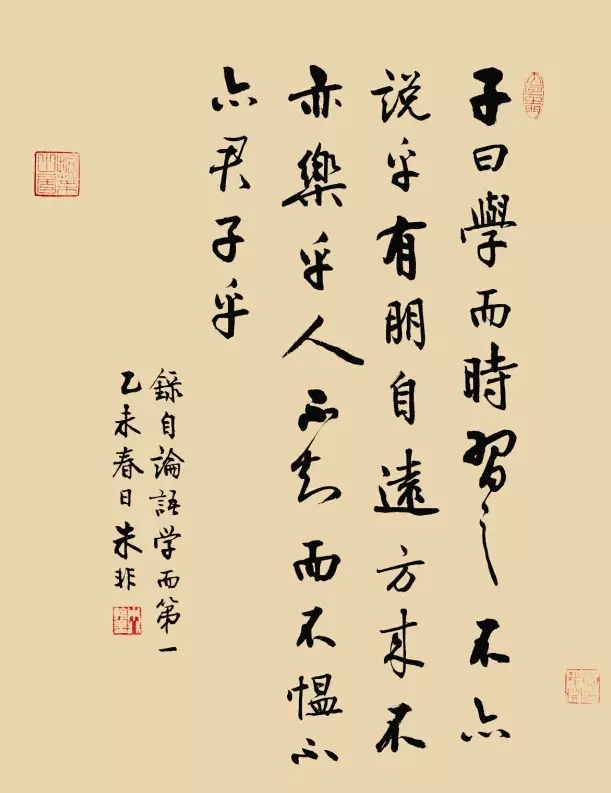 子曰學而時習之不亦
説乎有朋自遠方来不
亦樂乎人不知而不愠不
亦君子乎
錄自論語学而第一
乙未春日朱非